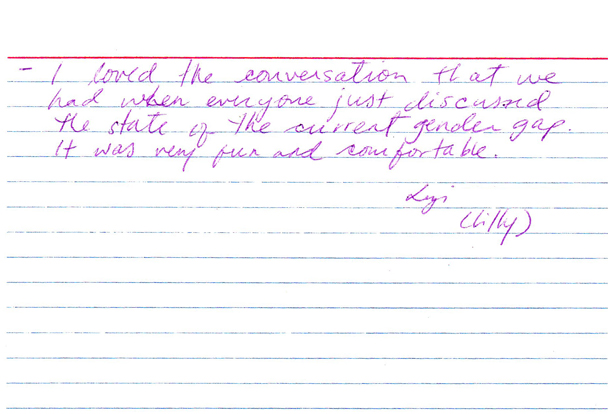 - I loved the conversation that we
had when everyone just discussed
the state of the current gender gap.
It was very fun and comfortable.
(Lilly)